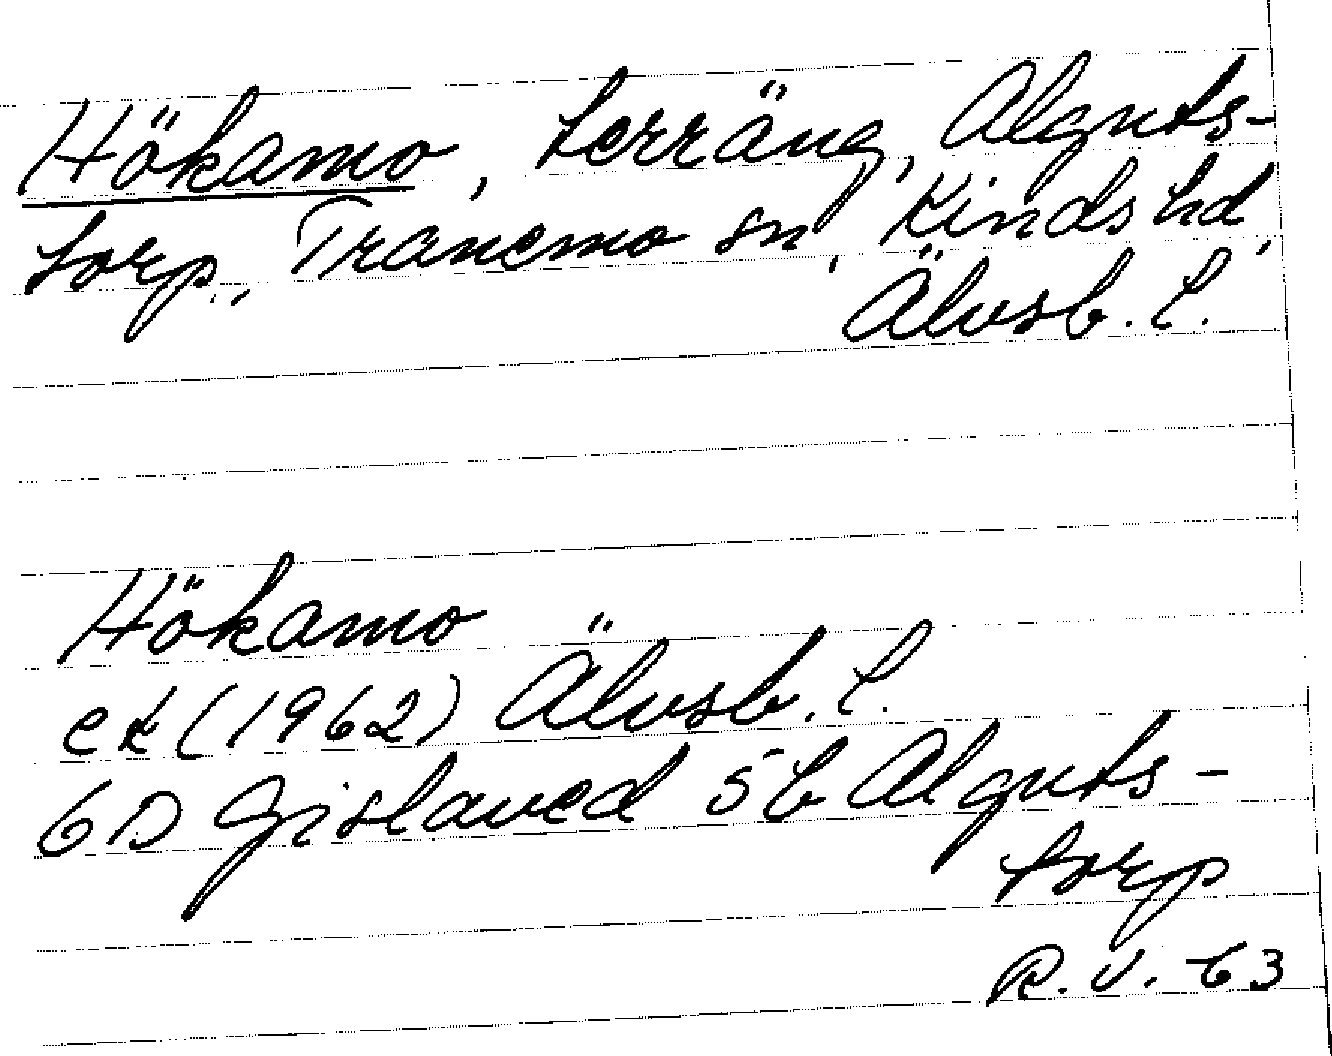 Hökamo, terräng, Alguts-
torp, Tranemo sn, Kinds hd,
Älvsb. l.
Hökamo
ek (1962) Älvsb. l.
6D Gislaved 5b Alguts-
torp
R.V. 63